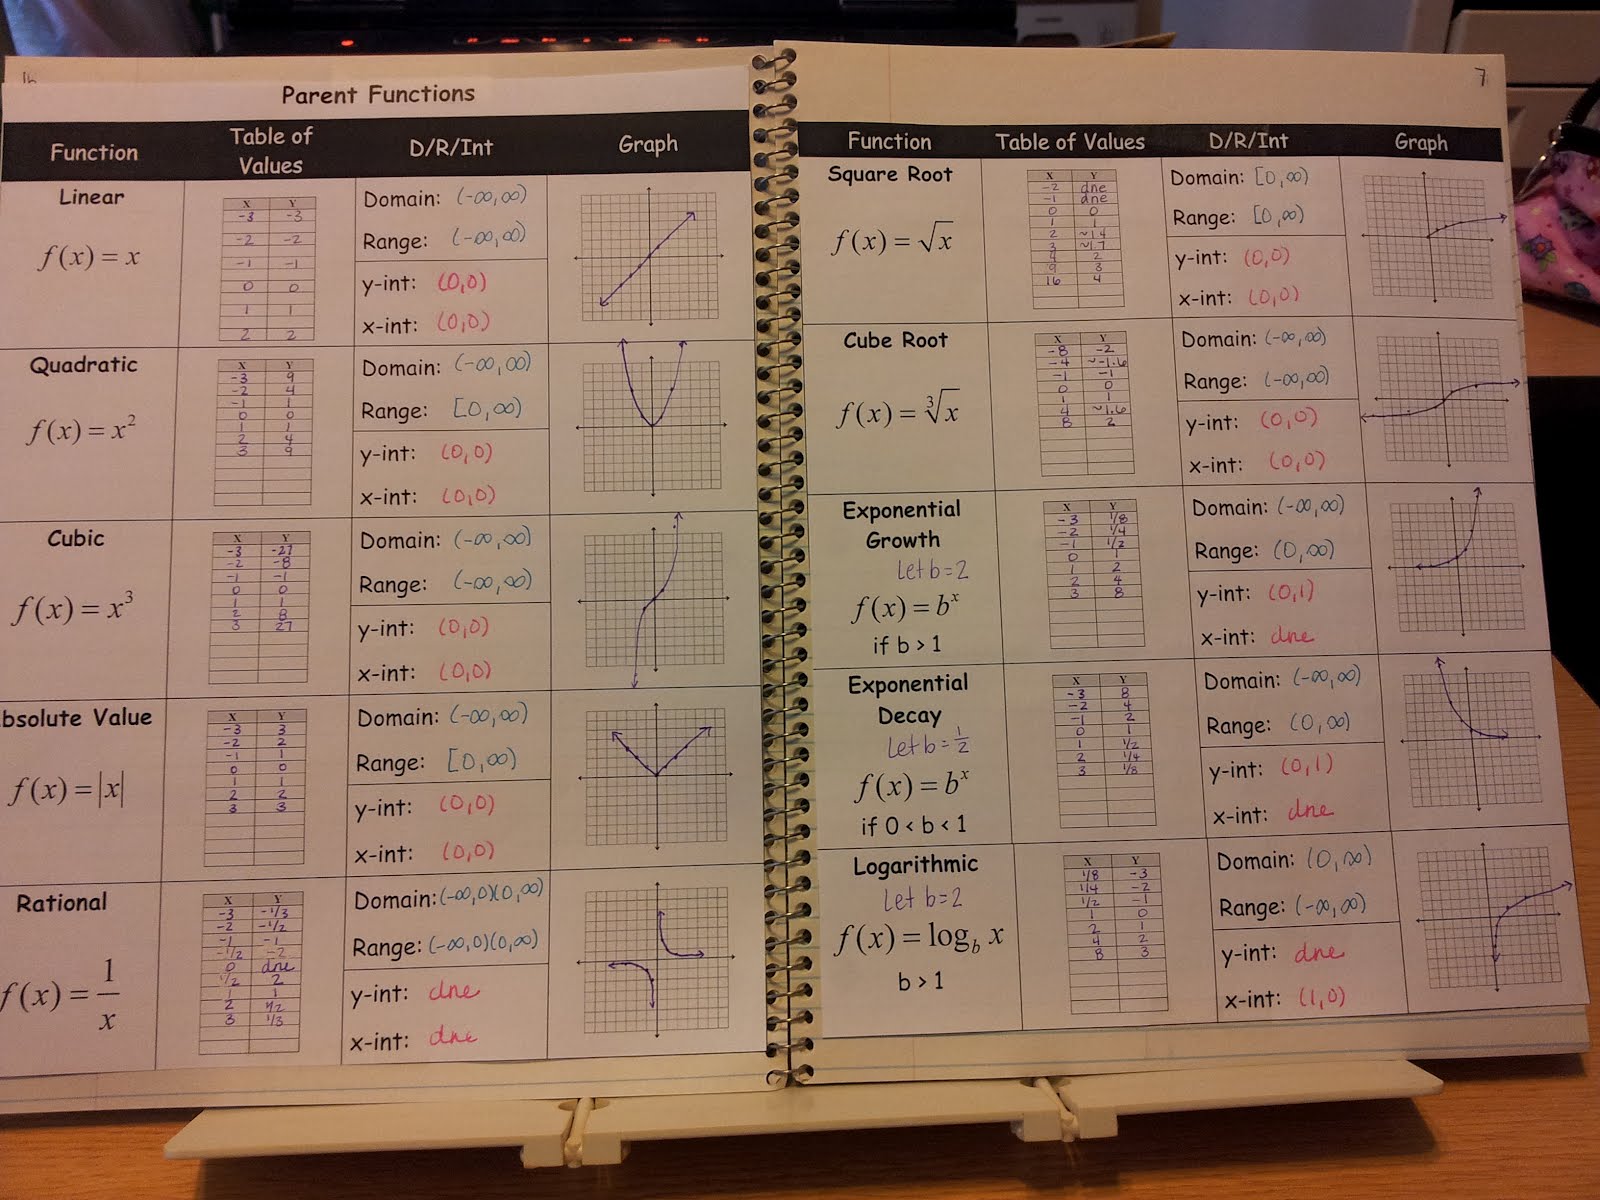 16
Parent Functions
Function Table of Values D/R/Int Graph
Linear
f(x) = x
X Y
-3 -3
-2 -2
-1 -1
0 0
1 1
2 2
Domain: (-∞,∞)
Range: (-∞,∞)
y-int: (0,0)
x-int: (0,0)
Quadratic
f(x) = x²
X Y
-3 9
-2 4
-1 1
0 0
1 1
2 4
3 9
Domain: (-∞,∞)
Range: [0,∞)
y-int: (0,0)
x-int: (0,0)
Cubic
f(x) = x³
X Y
-3 -27
-2 -8
-1 -1
0 0
1 1
2 8
3 27
Domain: (-∞,∞)
Range: (-∞,∞)
y-int: (0,0)
x-int: (0,0)
bsolute Value
f(x) = |x|
X Y
-3 3
-2 2
-1 1
0 0
1 1
2 2
3 3
Domain: (-∞,∞)
Range: [0,∞)
y-int: (0,0)
x-int: (0,0)
Rational
f(x) = 1/x
X Y
-3 -1/3
-2 -1/2
-1 -1
-1/2 -2
0 dne
1/2 2
1 1
2 1/2
3 1/3
Domain: (-∞,0)(0,∞)
Range: (-∞,0)(0,∞)
y-int: dne
x-int: dne
7
Function Table of Values D/R/Int Graph
Square Root
f(x) = √x
X Y
-2 dne
-1 dne
0 0
1 1
2 ~1.4
3 ~1.7
4 2
9 3
16 4
Domain: [0,∞)
Range: [0,∞)
y-int: (0,0)
x-int: (0,0)
Cube Root
f(x) = ∛x
X Y
-8 -2
-4 ~-1.6
-1 -1
0 0
1 1
4 ~1.6
8 2
Domain: (-∞,∞)
Range: (-∞,∞)
y-int: (0,0)
x-int: (0,0)
Exponential
Growth
Let b=2
f(x) = bˣ
if b > 1
X Y
-3 1/8
-2 1/4
-1 1/2
0 1
1 2
2 4
3 8
Domain: (-∞,∞)
Range: (0,∞)
y-int: (0,1)
x-int: dne
Exponential
Decay
Let b=1/2
f(x) = bˣ
if 0 < b < 1
X Y
-3 8
-2 4
-1 2
0 1
1 1/2
2 1/4
3 1/8
Domain: (-∞,∞)
Range: (0,∞)
y-int: (0,1)
x-int: dne
Logarithmic
Let b=2
f(x) = log_b x
b > 1
X Y
1/8 -3
1/4 -2
1/2 -1
1 0
2 1
4 2
8 3
Domain: (0,∞)
Range: (-∞,∞)
y-int: dne
x-int: (1,0)